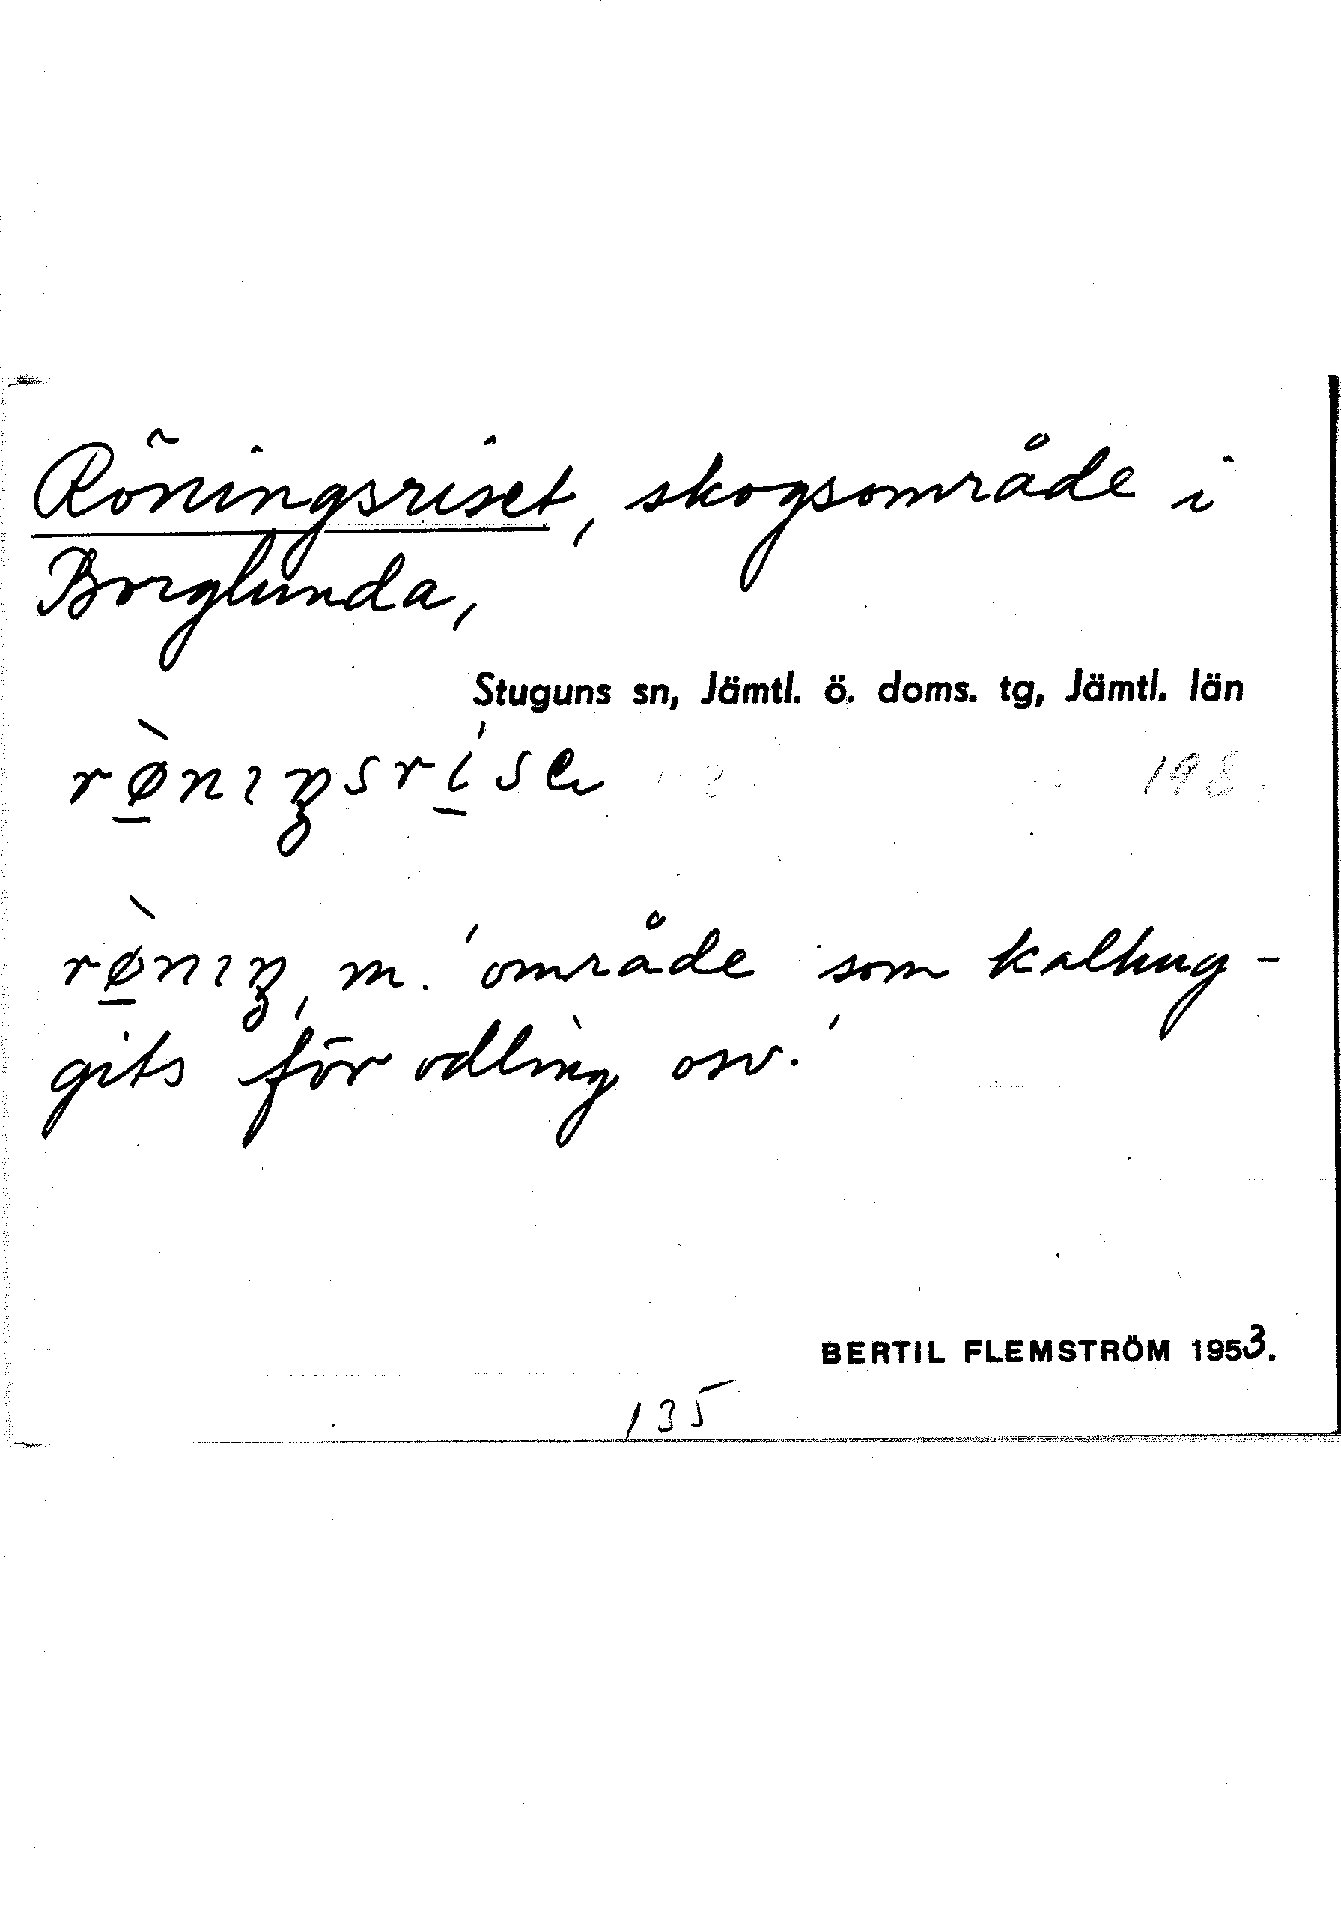 Röningsriset, skogsområde i
Borglunda,
Stuguns sn, Jämtl. ö. doms. tg, Jämtl. län
rø̱̀nıŋsrí̱se 198
rø̱̀nıŋ, m. 'område som kalhug-
gits för odling osv.'
BERTIL FLEMSTRÖM 1953.
135